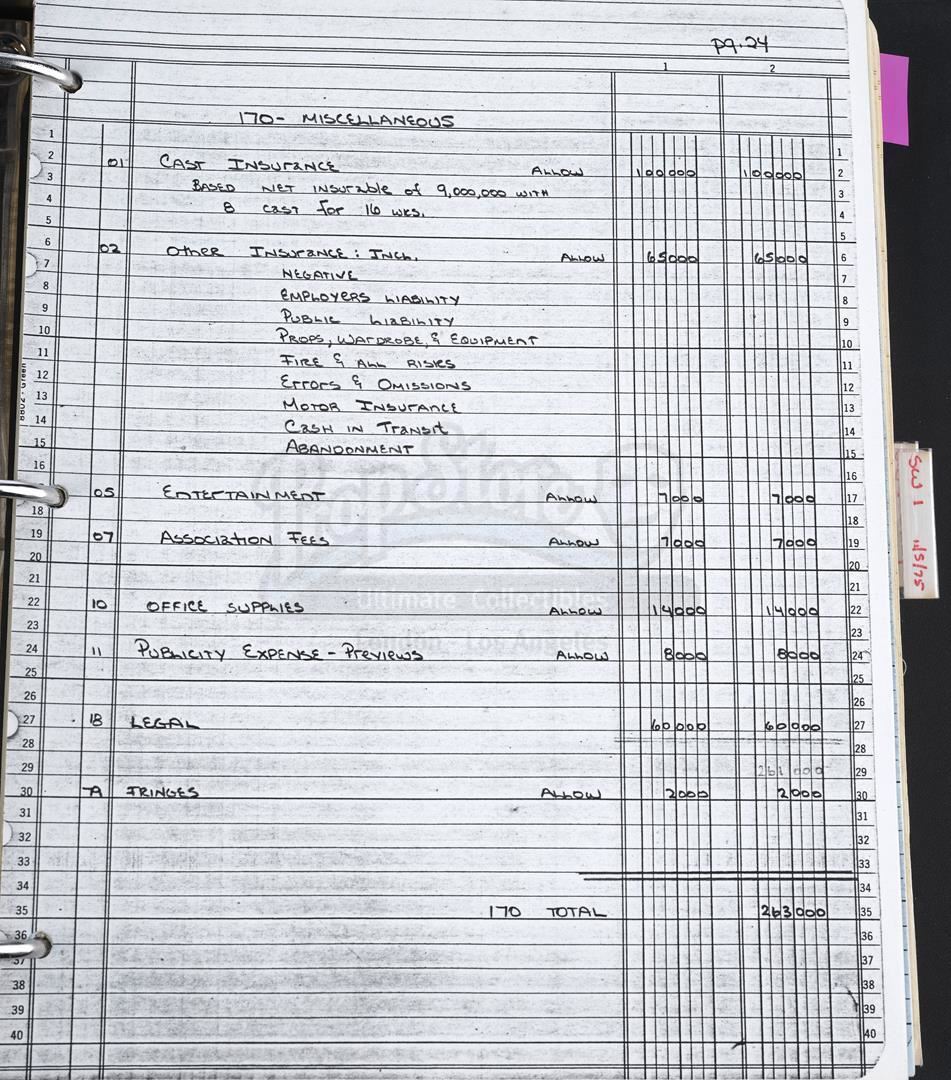 pg.24
1 2
170- MISCELLANEOUS
1 1
2 01 CAST INSURANCE ALLOW 100000 100000 2
3 BASED NET INSURABLE OF 9,000,000 WITH 3
4 8 CAST FOR 16 WKS. 4
5 5
6 02 OTHER INSURANCE: INCL. ALLOW 65000 65000 6
7 NEGATIVE 7
8 EMPLOYERS LIABILITY 8
9 PUBLIC LIABILITY 9
10 PROPS, WARDROBE, & EQUIPMENT 10
11 FIRE & ALL RISKS 11
12 ERRORS & OMISSIONS 12
13 MOTOR INSURANCE 13
14 CASH IN TRANSIT 14
15 ABANDONMENT 15
16 16
05 ENTERTAINMENT ALLOW 7000 7000 17
18 18
19 07 ASSOCIATION FEES ALLOW 7000 7000 19
20 20
21 21
22 10 OFFICE SUPPLIES ALLOW 14000 14000 22
23 23
24 11 PUBLICITY EXPENSE - PREVIEWS ALLOW 8000 8000 24
25 25
26 26
27 18 LEGAL 60000 60000 27
28 28
29 261 000 29
30 FRINGES ALLOW 2000 2000 30
31 31
32 32
33 33
34 34
35 170 TOTAL 263000 35
36 36
37 37
38 38
39 39
40 40
8802 - Green
SW 1 11/5/75
PropStore
Ultimate Collectibles
London - Los Angeles